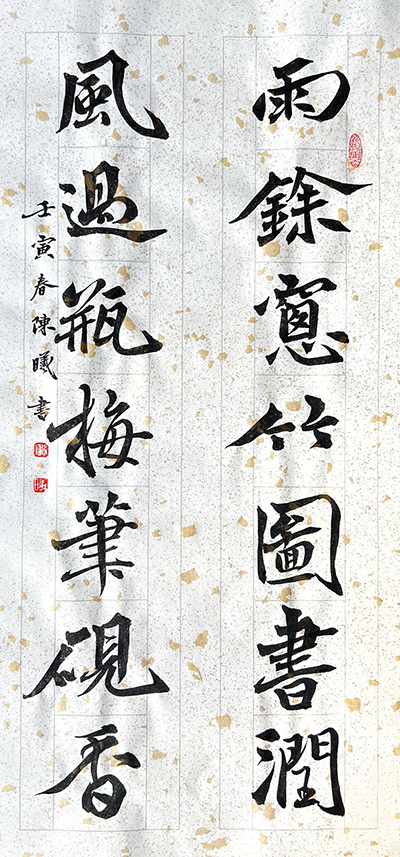 雨餘窻竹圖書潤
風過瓶梅筆硯香
壬寅春陳曦書